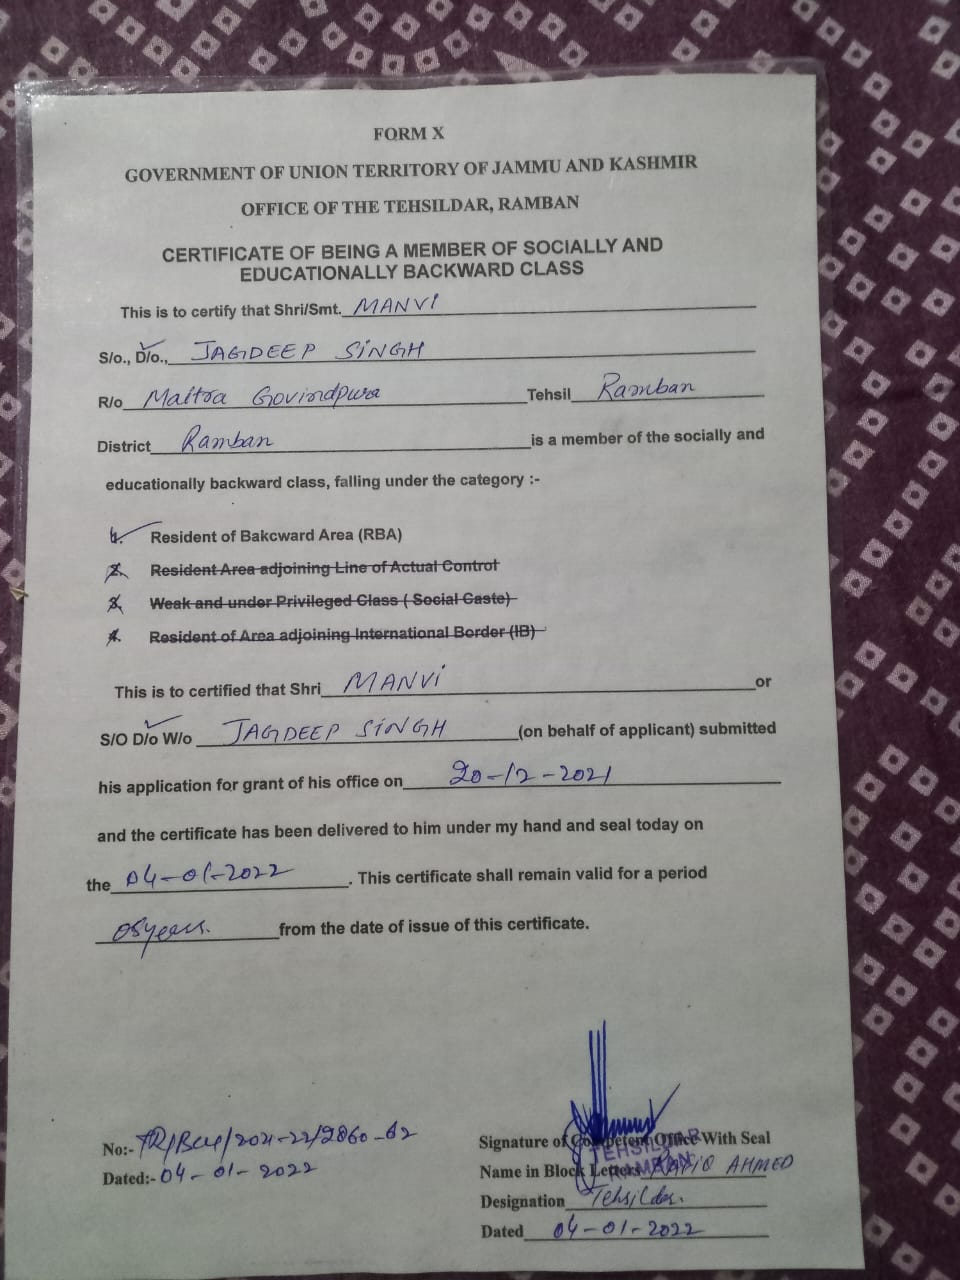 FORM X
GOVERNMENT OF UNION TERRITORY OF JAMMU AND KASHMIR
OFFICE OF THE TEHSILDAR, RAMBAN
CERTIFICATE OF BEING A MEMBER OF SOCIALLY AND
EDUCATIONALLY BACKWARD CLASS
This is to certify that Shri/Smt. MANVI
S/o., D/o., JAGDEEP SINGH
R/o Maitra Govindpura Tehsil Ramban
District Ramban is a member of the socially and
educationally backward class, falling under the category :-
1. Resident of Bakcward Area (RBA)
2. Resident Area adjoining Line of Actual Control
3. Weak and under Privileged Class ( Social Caste)
4. Resident of Area adjoining International Border (IB)
This is to certified that Shri MANVI or
S/O D/o W/o JAGDEEP SINGH (on behalf of applicant) submitted
his application for grant of his office on 20-12-2021
and the certificate has been delivered to him under my hand and seal today on
the 04-01-2022. This certificate shall remain valid for a period
05years. from the date of issue of this certificate.
No:- /2021-22/2860-62
Dated:- 04-01-2022
Signature of Competent Office With Seal
TEHSILDAR
RAMBAN
Name in Block Letters RAFIQ AHMED
Designation Tehsildar.
Dated 04-01-2022